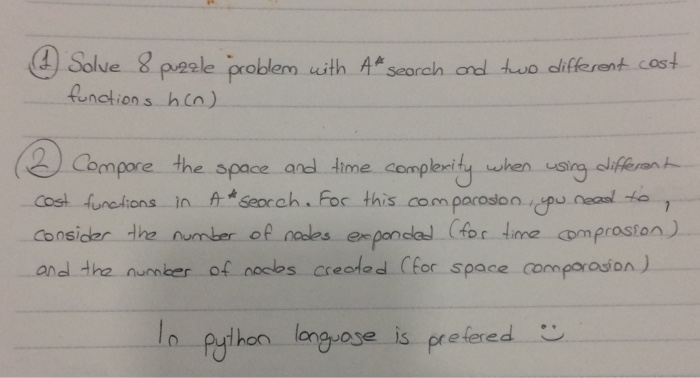 ① Solve 8 puzzle problem with A* search and two different cost
functions h(n)
② Compare the space and time complexity when using different
cost functions in A* search. For this comparosion, you need to,
consider the number of nodes expanded (for time comprasion)
and the number of nodes created (for space comparasion)
In python language is prefered :)